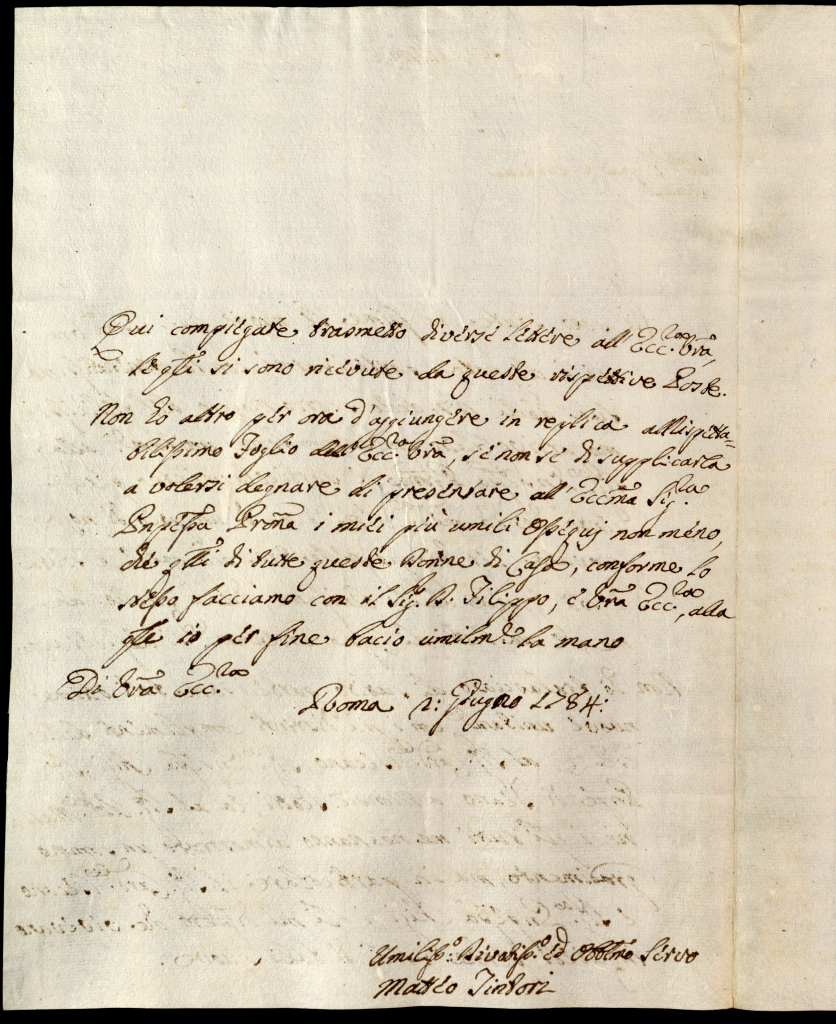 Qui compiegate trasmetto diverse lettere all'Ecc.za Vr̃a,
le q̃li si sono ricevute da queste rispettive Poste.
Non hò altro per ora d'aggiungere in replica al Rispetta=
bilissimo Foglio dell'Ecc.za Vr̃a, se non se di supplicarla
a volersi degnare di presentare all'Eccm̃a Sig.ra
Pñpessa Pror̃a i miei più umili ossequj non meno,
che q̃lli di tutte queste Donne di Casa, conforme lo
stesso facciamo con il Sig. D. Filippo, e Vr̃a Ecc.za, alla
q̃le io per fine bacio umilm.te la mano
Di Vr̃a Ecc.za
Roma 2: Giugno 1784:
Umiliss.o Divotiss.o ed Obblm̃o Servo
Matteo Tintori